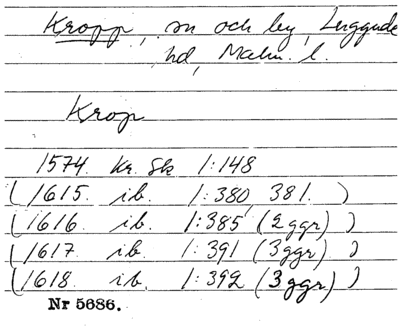 Kropp, sn och by, Luggude
hd, Malm. l.
Krop
1574. Kr. Sk 1:148
(1615. ib. 1:380, 381. )
(1616. ib. 1:385 (2 ggr) )
(1617. ib. 1:391 (3 ggr) )
(1618. ib. 1:392 (3 ggr) )
Nr 5686.